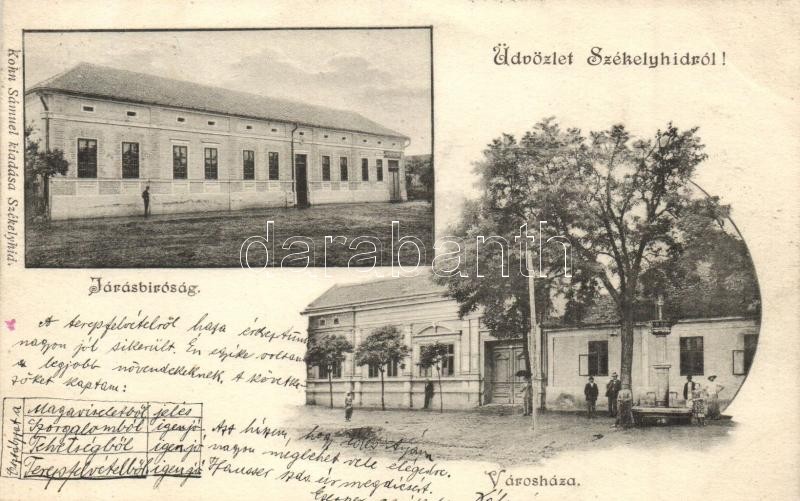 Üdvözlet Székelyhidról!
Kohn Sámuel kiadása Székelyhid.
darabanth
Járásbiróság.
A terepfelvételről haza érdeztünk
nagyon jól sikerült. Én egyike voltam
a legjobb növendékeknek, a követke-
zőket kaptam:
Magaviseletből jelés
Szorgalomból igen jó
Tehetségből igen jó
Terepfelvételből igen jó
Azt hiszem, hogy Édes Apám
nagyon meglehet vele elégedve.
Hausser szds úr megdicsért.
Városháza.